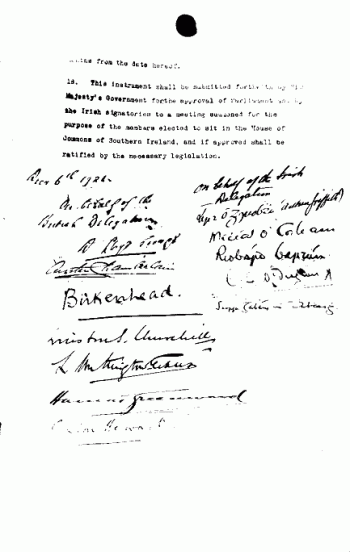 months from the date hereof.
18. This instrument shall be submitted forthwith by His
Majesty's Government for the approval of Parliament and by
the Irish signatories to a meeting summoned for the
purpose of the members elected to sit in the House of
Commons of Southern Ireland, and if approved shall be
ratified by the necessary legislation.
Decr 6th 1921.
On behalf of the
British Delegation
D Lloyd George
Austen Chamberlain
Birkenhead.
Winston S. Churchill
L. Worthington-Evans
Hamar Greenwood
Gordon Hewart
On behalf of the Irish
Delegation
Art Ó Gríobhtha (Arthur Griffith)
Micheál Ó Coileain
Riobárd Bartún